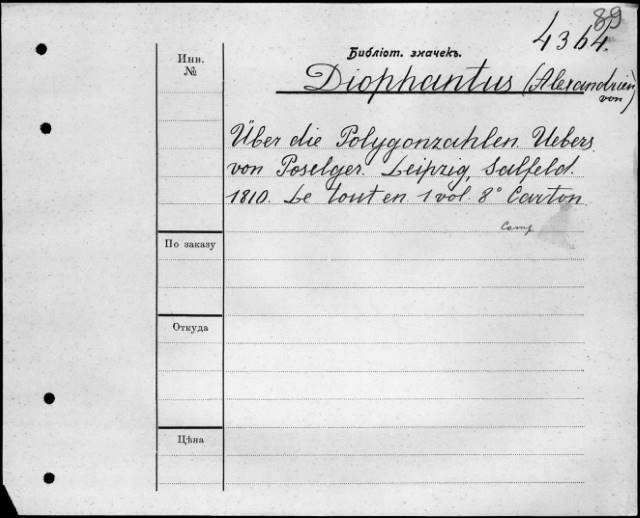 89
4364.
Инв.
№
Библіот. значекъ.
Diophantus (Alexandrien
von)
Über die Polygonzahlen. Uebers.
von Poselger. Leipzig, Salfeld.
1810. Le tout en 1 vol. 8° Carton
По заказу
Откуда
Цѣна